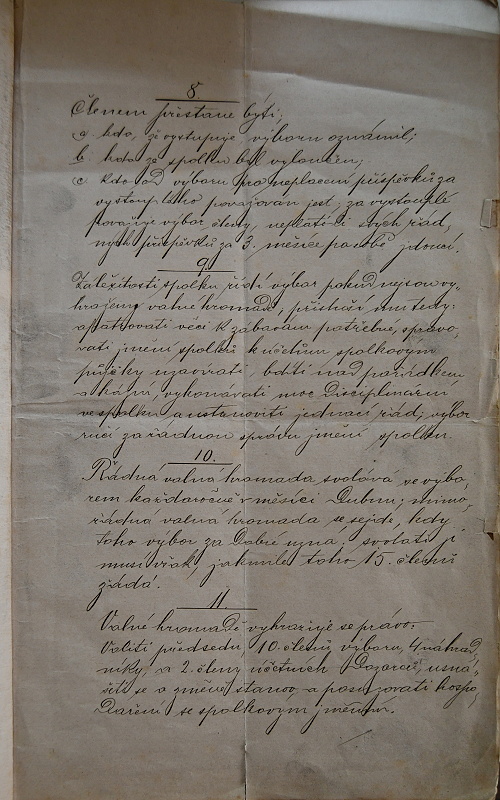 8.
Členem přestane býti;
a. kdo, že vystupuje výboru oznámil;
b. kdo ze spolku byl vyloučen;
c. kdo od výboru pro neplacení příspěvků za
vystouplého považován jest; za vystouplé
považuje výbor členy, neplatící svých řád„
ných příspěvků za 3. měsíce po sobě jdoucí.
9.
Záležitosti spolku řídí výbor pokud nejsou vy„
hrazeny valné hromadě, přísluší mu tedy:
opatřovati věci k zábavám potřebné, spravo„
vati jmění spolku k účelům spolkovým
půjčky uzavírati, bdíti nad pořádkem
a hájní, vykonávati moc disciplinární
ve spolku a ustanoviti jednací řád, výbor
ručí za řádnou správu jmění spolku.
10.
Řádná valná hromada svolává se výbo„
rem každoročně v měsíci Dubnu; mimo„
řádná valná hromada se sejde, kdy
toho výbor za dobré uzná; svolati ji
musí však, jakmile toho 15. členů
žádá.
11.
Valné hromadě vyhražuje se právo:
Voliti předsedu, 10. členů výboru, 4 náhrad„
níky a 2. členy účetních dozorců, usná„
šeti se o změně stanov a posuzovati hospo„
daření se spolkovým jměním.